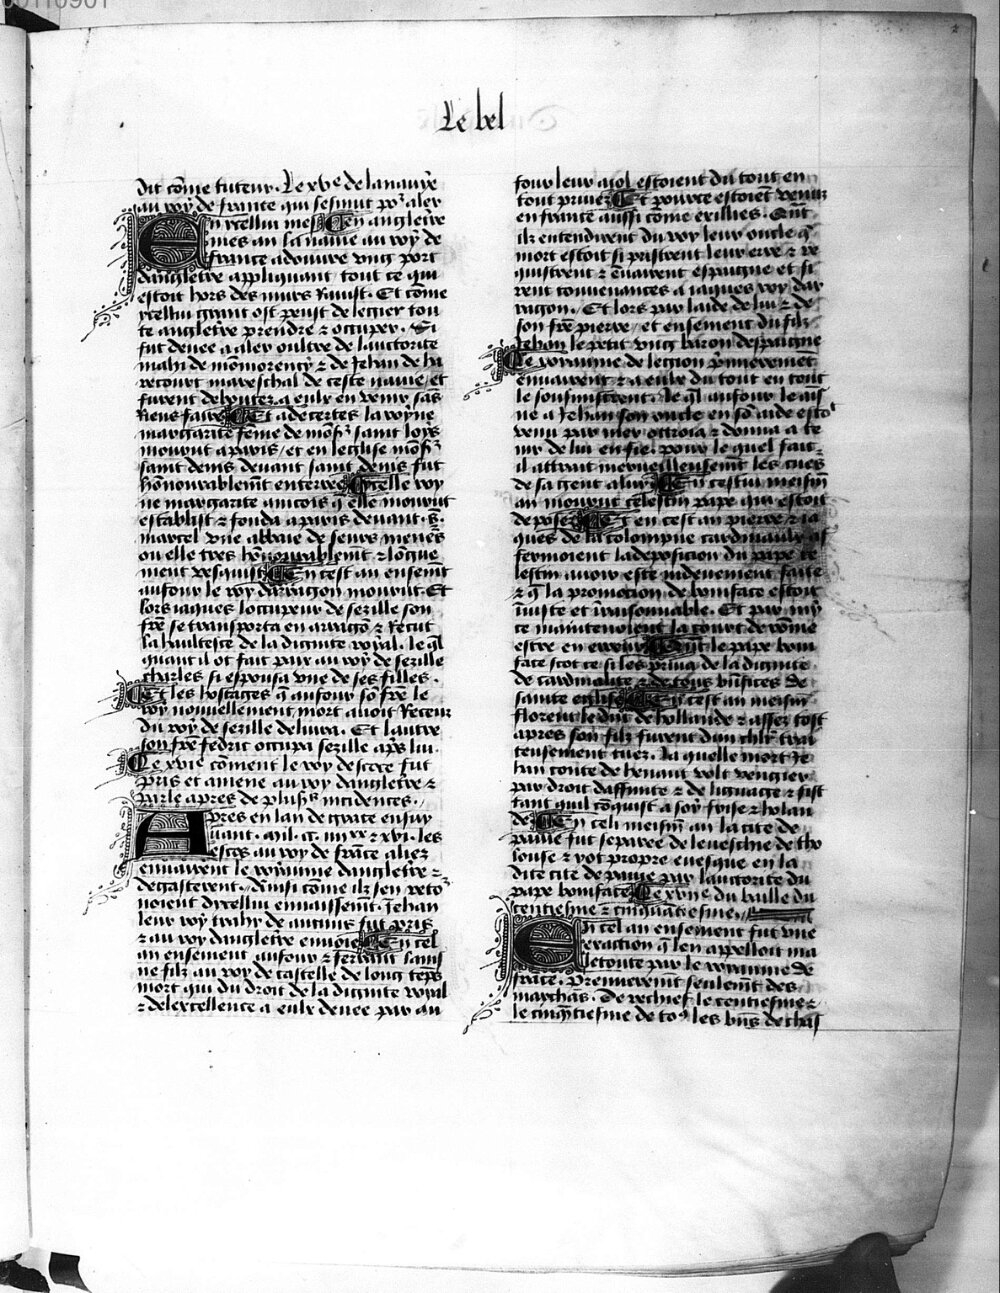 Le bel
dit cõme tuteur. Le xvͤ de la nauye
au roy de france qui sesmut poᷣ aler
En ycellui mes en angletre
mes an la nauie au roy de
france adouure vng port
dangletre appliquant tout ce qui
estoit hors des murs Rauist. Et cõme
ycellui grant ost peust de legier tou
te angletre prendre ⁊ occuper. Si
fut denee a aler oultre de lauctorite
mahi de mõmorency ⁊ de Jehan de ha
recourt mareschal de ceste nauie / et
furent deboutez a eulx en venir sãs
Riens faire Et adecertes la royne
margarite feme de mõsʳ saint loys
mourut a paris / et en leglise mõsʳ
saint denis deuant saint denis fut
hõnourablemt enterree ycelle roy
ne margarite aincois q̃ elle mourut
establist ⁊ fonda a paris deuant .s.
marcel vne abbaie de seurs meneᷤ
ou elle tres hõnourablemt ⁊ lõgue
ment vesquist En cest an ensemt
aufour le roy darragon mourut. Et
lors iaques loccupeur de sezille son
fre se transporta en arragõ ⁊ Recut
la haultesce de la dignite royal. le ql̃
quant il ot fait paix au roy de sezille
charles si espousa vne de ses filles.
Et les hostages q̃ aufour sõ fre le
roy nouuellement mort auoit Receuz
du roy de sezille deliura. Et lautre
son fre fedric occupa sezille apͤs lui.
Ce xviͤ cõment le roy descoce fut
pris et amene au roy dangletre ⁊
parle apres de plusˢ incidences.
Apres en lan de grace ensuy
uant. mil. cc. iiii xx ⁊ xvi. les
escos au roy de frãce aliez
enuairent le royaume dangletre ⁊
degasterent. Ainsi cõme ilz sen reto
noient dycellui enuaissemt. Jehan
leur roy trahy de aucuns fut pris
⁊ au roy dangletre enuoie En cel
an ensement aufour ⁊ ferrant sains
ne filz au roy de castelle de long tẽps
mort qui du droit de la dignite royal
⁊ de lexcellence a eulx denee par au
four leur aiol estoient du tout en
tout priuez Et pource estoiẽt venuz
en france aussi cõme exilliez. Quãt
ilz entendirent du roy leur oncle q̃
mort estoit si pristrent leur erre ⁊ re
quistrent ⁊ enairent espaigne et si
rent conuenances a iaques roy dar
ragon. Et lors par laide de lui ⁊ de
son fre pierre / et ensement du filz
Jehan le petit vng baron despaigne
Le royaume de legion p̃mieremẽt
enuairent ⁊ a eulx du tout en tout
le sousmistrent. le ql̃ aufour le ais
ne a Jehan son oncle en sõ aide esto
venu par mer ottroia ⁊ donna a te
nir de lui en fie. pour le quel fait
il attrait merueilleusemt les cuers
de sa gent a lui En cestui meism
an mourut celestin pape qui estoit
deposez Et en cest an pierre ⁊ ia
ques de la colompne cardinaulx af
fermoient la deposicion du pape ce
lestin auoir este indeuement faite
⁊ q̃ la promocion de boniface estoit
iniuste et irraisonnable. Et par my
ce maintenoient la court de rõme
estre en erreur Dont le pape boni
face scot ce si les priua de la dignite
de cardinalite ⁊ de tous bñfices de
sainte eglise En cest an meism
florent le duc de hollande ⁊ assez tost
apres son filz furent dun chlr trai
teusement tuez. La quelle mort Je
han conte de henaut volt vengier
par droit daffinite ⁊ de lignaige ⁊ fist
tant quil cõquist a soy frise ⁊ holan
de En cel meism an la cite de
pamie fut separee de leueschie de tho
louse ⁊ yot propre euesque en la
dite cite de pamie par lauctorite du
pape boniface Le xviiͤ du baille du
centiesme ⁊ cinquatiesme.
En cel an ensement fut vne
exaction q̃ len appelloit ma
letoute par le royaume de
frãce. premieremt seulemt des
marchãs. De rechief le centiesme ⁊
le cinqᵗiesme de toˀ les biẽs de chas